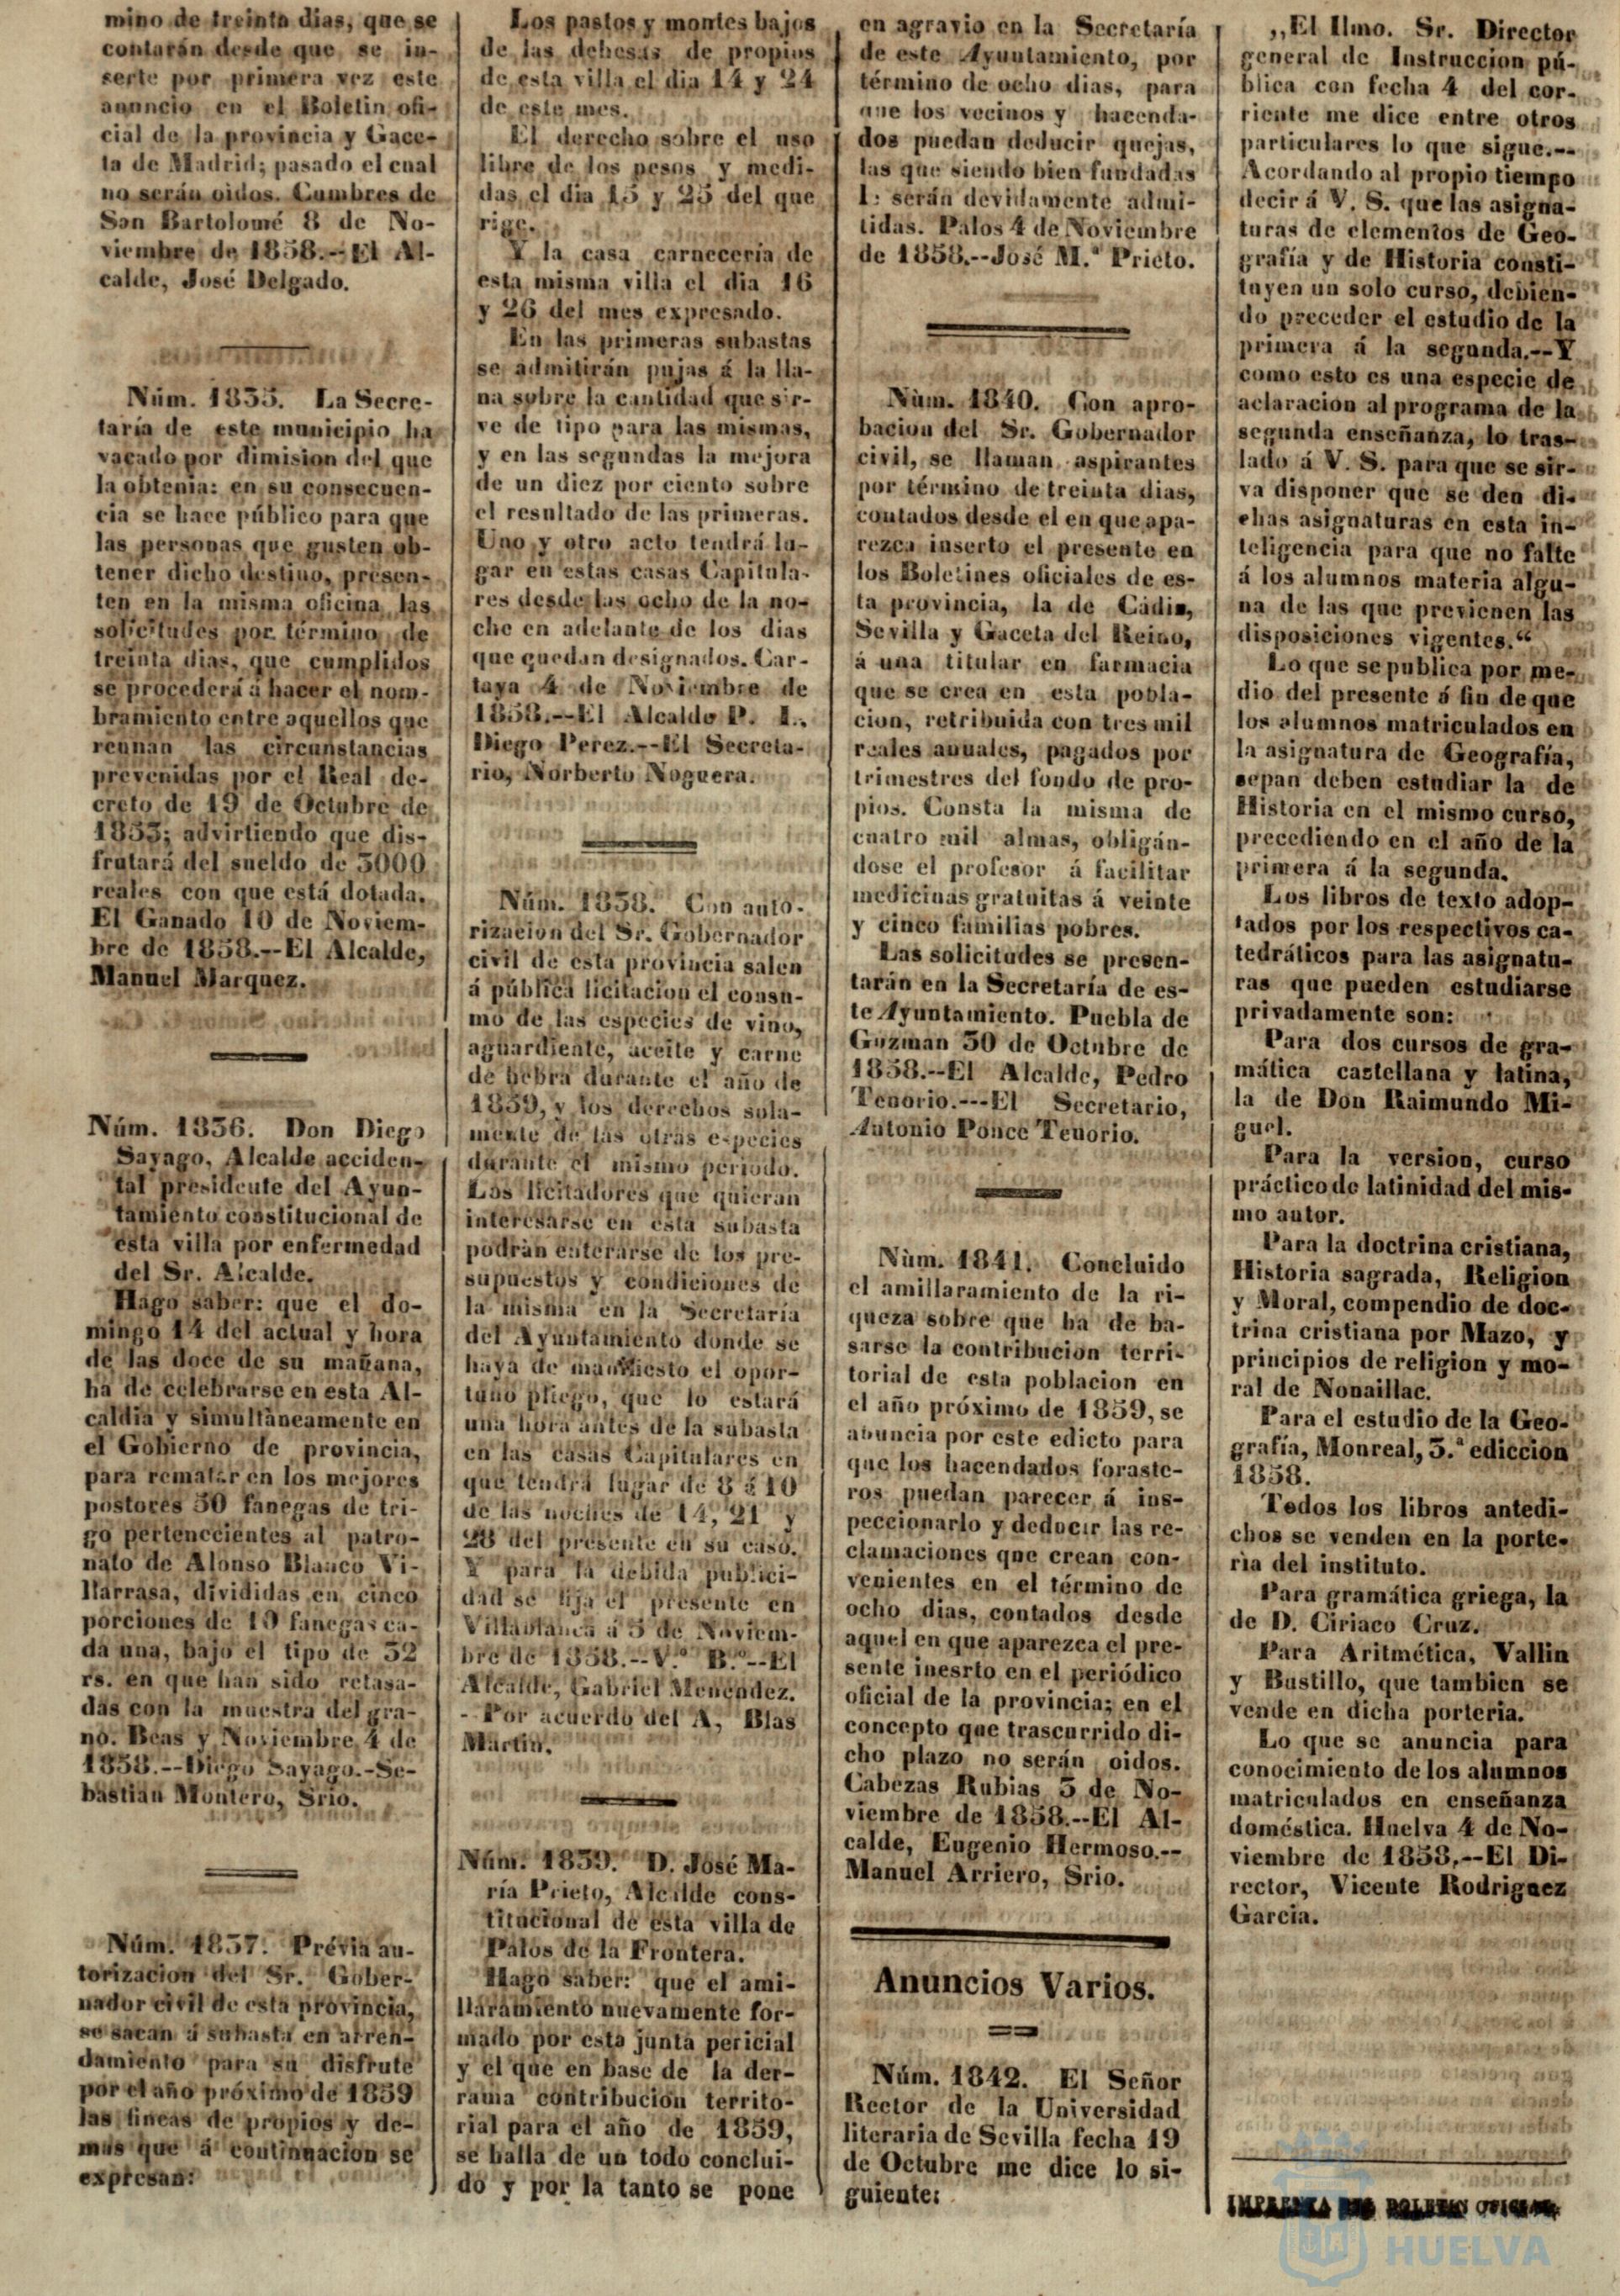 mino de treinta dias, que se
contarán desde que se in-
serte por primera vez este
anuncio en el Boletin ofi-
cial de la provincia y Gace-
ta de Madrid; pasado el cual
no serán oidos. Cumbres de
San Bartolomé 8 de No-
viembre de 1858.--El Al-
calde, José Delgado.
Núm. 1835. La Secre-
taría de este municipio ha
vacado por dimision del que
la obtenia: en su consecuen-
cia se hace público para que
las personas que gusten ob-
tener dicho destino, presen-
ten en la misma oficina las
solicitudes por término de
treinta dias, que cumplidos
se procederá á hacer el nom-
bramiento entre aquellos que
reunan las circunstancias
prevenidas por el Real de-
creto de 19 de Octubre de
1853; advirtiendo que dis-
frutará del sueldo de 3000
reales con que está dotada.
El Granado 10 de Noviem-
bre de 1858.--El Alcalde,
Manuel Marquez.
Núm. 1836. Don Diego
Sayago, Alcalde acciden-
tal presidente del Ayun-
tamiento constitucional de
esta villa por enfermedad
del Sr. Alcalde.
Hago saber: que el do-
mingo 14 del actual y hora
de las doce de su mañana,
ha de celebrarse en esta Al-
caldia y simultàneamente en
el Gobierno de provincia,
para rematar en los mejores
postores 50 fanegas de tri-
go pertenecientes al patro-
nato de Alonso Blanco Vi-
llarrasa, divididas en cinco
porciones de 10 fanegas ca-
da una, bajo el tipo de 32
rs. en que han sido retasa-
das con la muestra del gra-
no. Beas y Noviembre 4 de
1858.--Diego Sayago.-Se-
bastian Montero, Srio.
Núm. 1837. Prévia au-
torizacion del Sr. Gober-
nador civil de esta provincia,
se sacan á subasta en arren-
damiento para su disfrute
por el año próximo de 1859
las fincas de propios y de-
mas que á continuacion se
expresan:
Los pastos y montes bajos
de las dehesas de propios
de esta villa el dia 14 y 24
de este mes.
El derecho sobre el uso
libre de los pesos y medi-
das el dia 15 y 25 del que
rige.
Y la casa carnecería de
esta misma villa el dia 16
y 26 del mes expresado.
En las primeras subastas
se admitirán pujas á la lla-
na sobre la cantidad que sir-
ve de tipo para las mismas,
y en las segundas la mejora
de un diez por ciento sobre
el resultado de las primeras.
Uno y otro acto tendrá lu-
gar en estas casas Capitula-
res desde las ocho de la no-
che en adelante de los dias
que quedan designados. Car-
taya 4 de Noviembre de
1858.--El Alcalde P. I.,
Diego Perez.--El Secreta-
rio, Norberto Noguera.
Núm. 1838. Con auto-
rizacion del Sr. Gobernador
civil de esta provincia salen
á pública licitacion el consu-
mo de las especies de vino,
aguardiente, aceite y carne
de hebra durante el año de
1859, y los derechos sola-
mente de las otras especies
durante el mismo periodo.
Los licitadores que quieran
interesarse en esta subasta
podràn enterarse de los pre-
supuestos y condiciones de
la misma en la Secretaría
del Ayuntamiento donde se
haya de manifiesto el opor-
tuno pliego, que lo estará
una hora antes de la subasta
en las casas Capitulares en
que tendrá lugar de 8 á 10
de las noches de 14, 21 y
28 del presente en su caso.
Y para la debida publici-
dad se fija el presente en
Villablanca á 5 de Noviem-
bre de 1858.--V.º B.º--El
Alcalde, Gabriel Menendez.
- Por acuerdo del A, Blas
Martin.
Núm. 1839. D. José Ma-
ría Prieto, Alcalde cons-
titucional de esta villa de
Palos de la Frontera.
Hago saber: que el ami-
llaramiento nuevamente for-
mado por esta junta pericial
y el que en base de la der-
rama contribucion territo-
rial para el año de 1859,
se halla de un todo conclui-
do y por la tanto se pone
en agravio en la Secretaría
de este Ayuntamiento, por
término de ocho dias, para
que los vecinos y hacenda-
dos puedan deducir quejas,
las que siendo bien fundadas
l: serán devidamente admi-
tidas. Palos 4 de Noviembre
de 1858.--José M.ª Prieto.
Nùm. 1840. Con apro-
bacion del Sr. Gobernador
civil, se llaman aspirantes
por término de treinta dias,
contados desde el en que apa-
rezca inserto el presente en
los Boletines oficiales de es-
ta provincia, la de Cádiz,
Sevilla y Gaceta del Reino,
á una titular en farmacia
que se crea en esta pobla-
cion, retribuida con tres mil
reales anuales, pagados por
trimestres del fondo de pro-
pios. Consta la misma de
cuatro mil almas, obligán-
dose el profesor á facilitar
medicinas gratuitas á veinte
y cinco familias pobres.
Las solicitudes se presen-
tarán en la Secretaría de es-
te Ayuntamiento. Puebla de
Guzman 30 de Octubre de
1858.--El Alcalde, Pedro
Tenorio.---El Secretario,
Antonio Ponce Tenorio.
Nùm. 1841. Concluido
el amillaramiento de la ri-
queza sobre que ha de ba-
sarse la contribucion terri-
torial de esta poblacion en
el año próximo de 1859, se
anuncia por este edicto para
que los hacendados foraste-
ros puedan parecer á ins-
peccionarlo y deducir las re-
clamaciones qne crean con-
venientes en el término de
ocho dias, contados desde
aquel en que aparezca el pre-
sente inesrto en el periódico
oficial de la provincia; en el
concepto que trascurrido di-
cho plazo no serán oidos.
Cabezas Rubias 5 de No-
viembre de 1858.--El Al-
calde, Eugenio Hermoso.--
Manuel Arriero, Srio.
Anuncios Varios.
Núm. 1842. El Señor
Rector de la Universidad
literaria de Sevilla fecha 19
de Octubre me dice lo si-
guiente:
,,El Ilmo. Sr. Director
general de Instruccion pú-
blica con fecha 4 del cor-
riente me dice entre otros
particulares lo que sigue.--
Acordando al propio tiempo
decir á V. S. que las asigna-
turas de elementos de Geo-
grafía y de Historia consti-
tuyen un solo curso, debien-
do preceder el estudio de la
primera á la segunda.--Y
como esto es una especie de
aclaracion al programa de la
segunda enseñanza, lo tras-
lado á V. S. para que se sir-
va disponer que se den di-
chas asignaturas en esta in-
teligencia para que no falte
á los alumnos materia algu-
na de las que previenen las
disposiciones vigentes.“
Lo que se publica por me-
dio del presente á fin de que
los alumnos matriculados en
la asignatura de Geografía,
sepan deben estudiar la de
Historia en el mismo curso,
precediendo en el año de la
primera á la segunda.
Los libros de texto adop-
tados por los respectivos ca-
tedráticos para las asignatu-
ras que pueden estudiarse
privadamente son:
Para dos cursos de gra-
mática castellana y latina,
la de Don Raimundo Mi-
guel.
Para la version, curso
práctico de latinidad del mis-
mo autor.
Para la doctrina cristiana,
Historia sagrada, Religion
y Moral, compendio de doc-
trina cristiana por Mazo, y
principios de religion y mo-
ral de Nonaillac.
Para el estudio de la Geo-
grafía, Monreal, 3.ª ediccion
1858.
Todos los libros antedi-
chos se venden en la porte-
ria del instituto.
Para gramática griega, la
de D. Ciriaco Cruz.
Para Aritmética, Vallin
y Bustillo, que tambien se
vende en dicha porteria.
Lo que se anuncia para
conocimiento de los alumnos
matriculados en enseñanza
doméstica. Huelva 4 de No-
viembre de 1858.--El Di-
rector, Vicente Rodriguez
Garcia.
IMPRENTA DEL BOLETIN OFICIAL.
HUELVA